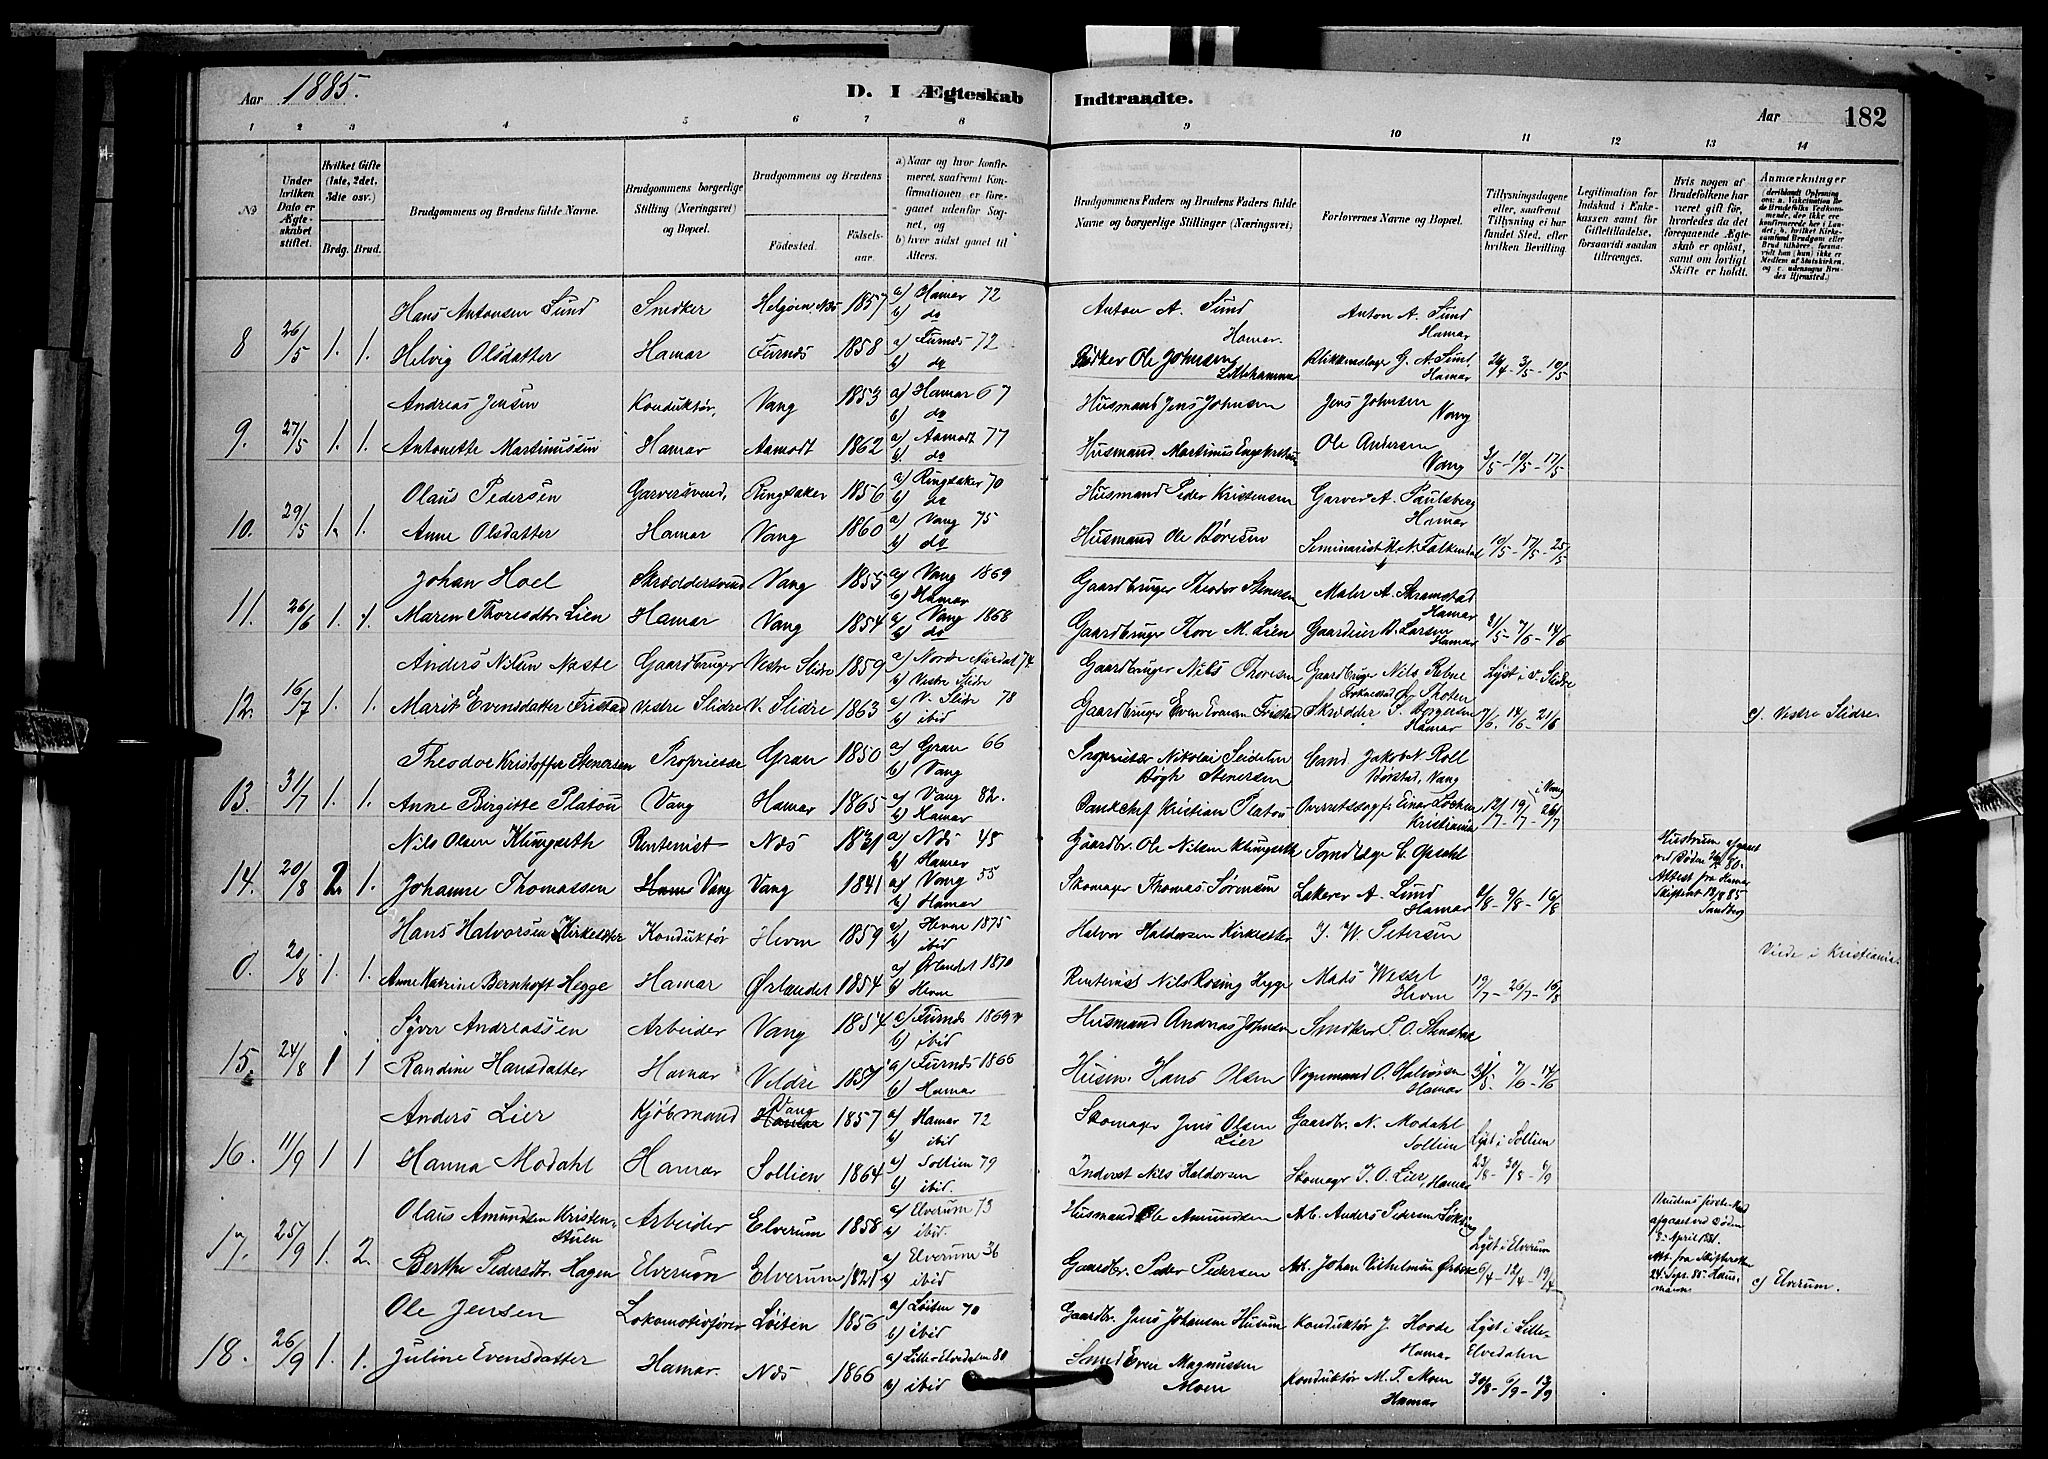 Aar 1885. D. I Ægteskab Indtraadte. Aar 182
1 2 3 4 5 6 7 8 9 10 11 12 13 14
No
Under hvilken Dato er Ægteskabet stiftet.
Hvilket Gifte (1ste, 2det, 3die osv.)
Brdg. Brud.
Brudgommens og Brudens fulde Navne.
Brudgommens borgerlige Stilling (Næringsvei) og Bopæl.
Brudgommens og Brudens
Fødested. Fødselsaar.
a) Naar og hvor konfirmeret, saafremt Konfirmationen er foregaaet udenfor Sognet, og
b) hvor sidst gaaet til Alters.
Brudgommens Faders og Brudens Faders fulde Navne og borgerlige Stillinger (Næringsvei)
Forlovernes Navne og Bopæl.
Tillysningsdagene eller, saafremt Tillysning ei har fundet Sted, efter hvilken Bevilling
Legitimation for Indskud i Enkekassen samt for Giftetilladelse, forsaavidt saadan tiltrænges.
Hvis nogen af Brudefolkene har været gift før, hvordedes da det foregaaende Ægteskab er opløst, samt om lovligt Skifte er holdt.
Anmærkninger
Hans Antonsen Sund Snedker Helgøen Næs 1857 a) Hamar 72 b) do Anton A. Sund Hamar. Anton A. Sund Hamar
8 26/5 1. 1. Helvig Olsdatter Hamar Furnæs 1858 a) Furnæs 72 b) do Ole Johnsen Lillehammer G. A. Sund, Hamar 26/4 - 3/5 - 10/5
Andreas Jensen Konduktør, Vang 1853 a) Hamar 67 b) do Husmand Jens Johnsen Jens Johnsen Vang
9. 27/5 1. 1. Antonette Martinussen Hamar Aamodt 1862 a) Aamodt 77 b) do Husmand Martinus Ole Andersen Vang 3/5 - 10/5 - 17/5
Olaus Pedersen Garversvend, Ringsaker 1856 a) Ringsaker 70 b) do Husmand Peder Kristensen Garver A. Paulsberg Hamar
10. 29/5 1. 1. Anne Olsdatter Hamar Vang 1860 a) Vang 75 b) do Husmand Ole Børesen Seminarist N. Falkendal 10/5 - 17/5 - 25/5
Johan Hoel Skræddersvend Vang 1855 a) Vang 1869 b) Hamar Gaardbruger Theodor Stenersen Maler A. Skramstad Hamar
11. 26/6 1. 1. Maren Thoresdtr. Lien Hamar Vang 1854 a) Vang 1868 b) do Gaardbruger Thore M. Lien Gaardeier Larsen Hamar 31/5 - 7/6 - 14/6
Anders Nilsen Neste Gaardbruger Vestre Slidre 1859 a) Nordre Aurdal 74. b) Vestre Slidre Gaardbruger Nils Thoresen Gaardbruger Nils Rebne Ø. Thoten Lyst i V. Slidre
12. 16/7 1. 1. Marit Evensdatter Fristad Vestre Slidre V. Slidre 1863 a) V. Slidre 78 b) ibid Gaardbruger Even Evensen Fristad Skrædder S. Borgersen Hamar 7/6. 14/6 - 21/6 c) Vestre Slidre
Theodor Kristoffer Stenersen Proprietær Gran 1850 a) Gran 66 b) Vang Proprietær Nikolai Seidelin Bøgh Stenersen Cand. Jakob N. Roll Børstad, Vang
13. 31/7 1. 1. Anne Birgitte Platou Vang Hamar 1865 a) Vang 82. b) Hamar Bankchef Kristian Platou Overretssagf. Einar Løchen Kristiania i Vang 12/7 - 19/7 - 26/7
Nils Olsen Klingseth Rentenist Næs 1831 a) Næs 45 b) Hamar Gaardbr. Ole Nilsen Klingseth C. Opsahl
14. 20/8 2. 1. Johanne Thomassen Vang Vang 1841 a) Vang 55 b) Hamar Skomager Thomas Sørensen Lakerer A. Lund Hamar 2/8 - 9/8 - 16/8 Hustruen afgaaet ved Døden Attest fra Hamar Skifteret 19/8 85 Sandberg
Hans Halvorsen Kirkesæter Konduktør Hevne 1859 a) Hevne 1875 b) ibid Halvor Haldorsen Kirkesæter J. W. Petersen
0. 20/8 1. 1. Anne Katrine Bernhoft Hegge Hamar Ørlandet 1854 a) Ørlandet 1870 b) Hevne Rentenist Nils Rosing Hegge Mads Wessel Hevne 19/7 - 26/7 - 16/8 Viede i Kristiania
Syver Andreassen Arbeider Vang 1854 a) Furnæs 1869 b) ibid Husmand Andreas Johnsen Snedker P. O. Stenstad
15. 24/8 1 1 Randine Hansdatter Hamar Veldre 1857 a) Furnæs 1866 b) Hamar Husm. Hans Olsen Vognmand O. Halvorsen Hamar 31/5. 7/6 - 14/6
Anders Lier Kjøbmand Vang 1857 a) Hamar 72 b) ibid Skomager Jens Olsen Lier Gaardbr. N. Modahl Sollien Lyst i Sollien
16. 11/9 1 1 Hanna Modahl Hamar Sollien 1864 a) Sollien 79 b) ibid. Inderst Nils Haldorsen Skomager J. O. Lier, Hamar 23/8 - 30/8 - 6/9
Olaus Amundsen Kristenstuen Arbeider Elverum 1858 a) Elverum 73 b) ibid. Husmand Ole Amundsen Arb. Anders Pedersen Løkting Lyst i Elverum
17. 25/9 1. 2. Berthe Pedersdtr. Hagen Elverum Elverum 1821 a) Elverum 36 b) ibid Gaardbr. Peder Pedersen Arb. Johan Vilhelmsen 5/4 - 12/4 - 19/4 Brudens første Mand afgaaet ved Døden 3. April 1881. Att. fra Skifteretten 24. Sept. 85. c) Elverum.
Ole Jensen Lokomotivfører Løiten 1856 a) Løiten 70 b) ibid Gaardbr. Jens Johansen Husum Konduktør J. Hovde Hamar Lyst i Lille-Elvedalen
18. 26/9 1. 1. Juline Evensdatter Hamar. Næs 1866 a) Lille-Elvedalen 80 b) ibid Smed Even Magnussen Moen Konduktør M. F. Moen Hamar 30/8 - 6/9 - 13/9